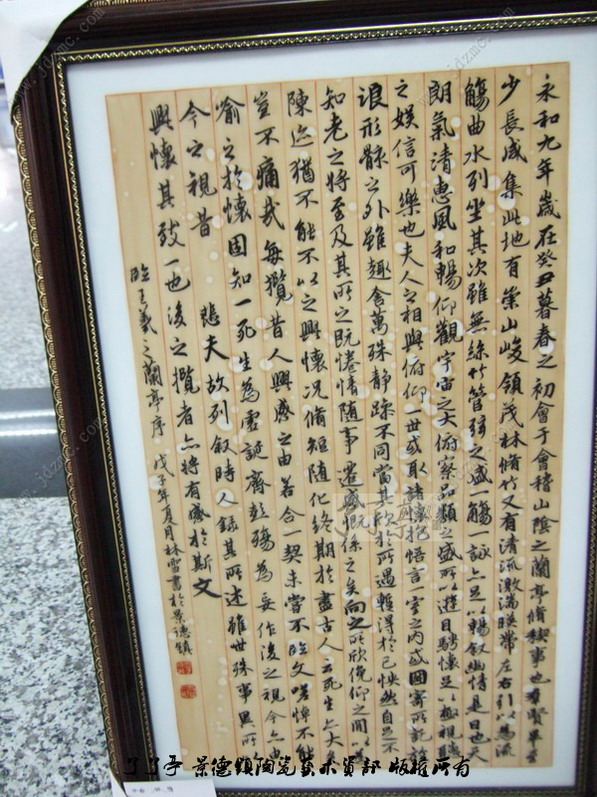 永和九年歲在癸丑暮春之初會于會稽山陰之蘭亭脩稧事也羣賢畢至
少長咸集此地有崇山峻領茂林脩竹又有清流激湍暎帶左右引以為流
觴曲水列坐其次雖無絲竹管弦之盛一觴一詠亦足以暢敘幽情是日也天
朗氣清惠風和暢仰觀宇宙之大俯察品類之盛所以遊目騁懷足以極視聽
之娛信可樂也夫人之相與俯仰一世或取諸懷抱悟言一室之內或因寄所託放
浪形骸之外雖趣舍萬殊靜躁不同當其欣於所遇暫得於己怏然自足不
知老之將至及其所之既惓情隨事遷感慨係之矣向之所欣俛仰之間以為
陳迹猶不能不以之興懷況脩短隨化終期於盡古人云死生亦大
豈不痛哉每攬昔人興感之由若合一契未嘗不臨文嗟悼不能
喻之於懷固知一死生為虛誕齊彭殤為妄作後之視今亦由
今之視昔 悲夫故列敘時人錄其所述雖世殊事異所以
興懷其致一也後之攬者亦將有感於斯文
臨王羲之蘭亭序 戊子年夏月林雪書於景德鎮
了了亭 景德镇陶瓷艺术资部 版权所有
www.jdzmc.com